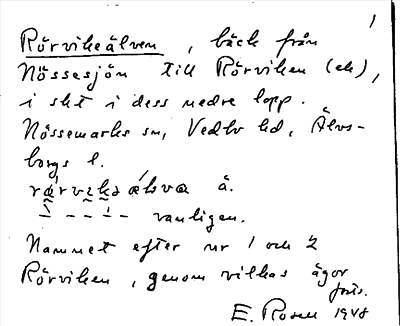 1
Rörvikeälven, bäck från
Nössesjön till Rörviken (ek),
i skt i dess nedre lopp.
Nössemarks sn, Vedbo hd, Älvs-
borgs l.
å.
vanligen.
Namnet efter nr 1 och 2
Rörviken, genom vilkas ägor
E. Rosell 1948